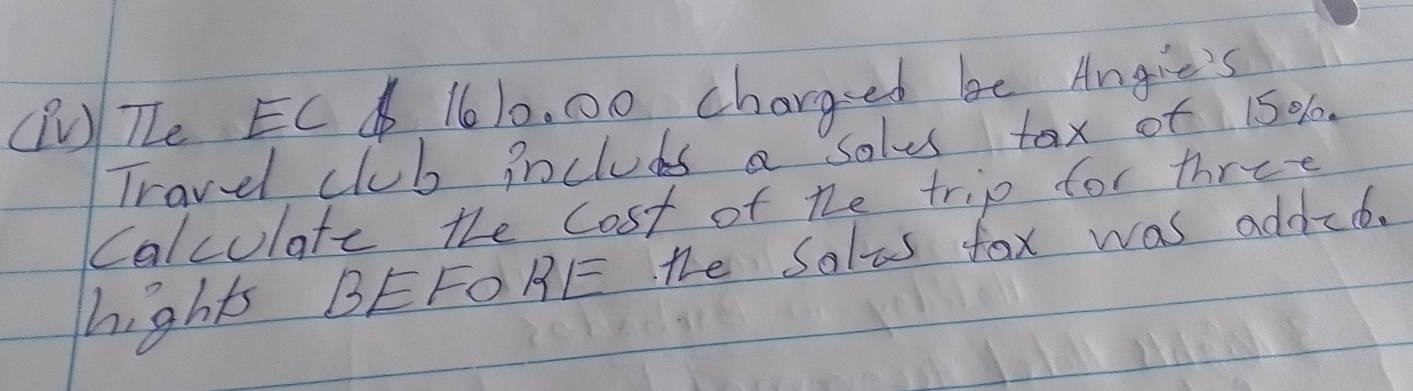 (iv) The EC $ 1610.00 charged be Angie's
Travel club includs a sales tax of 15%.
Calculate the cost of the trip for three
nights BEFORE the sales tax was added.